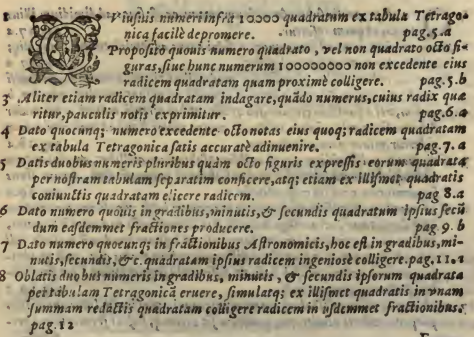 1 Viusuis numeri infra 10000 quadratum ex tabula Tetrago-
nica facilè depromere. pag. 5. a
2 Proposito quouis numero quadrato, vel non quadrato octo fi-
guras, siue hunc numerum 100000000 non excedente eius
radicem quadratam quam proximè colligere. pag. 5. b
3 Aliter etiam radicem quadratam indagare, quãdo numerus, cuius radix quæ
ritur, pauculis notis exprimitur. pag. 6. a
4 Dato quocunq; numero excedente octo notas eius quoq; radicem quadratam
ex tabula Tetragonica satis accuratè adinuenire. pag. 7. a
5 Datis duobus numeris pluribus quàm octo figuris expressis eorum quadrata
per nostram tabulam separatim conficere, atq; etiam ex illismet quadratis
coniunctis quadratam elicere radicem. pag 8. a
6 Dato numero quouis in gradibus, minutis, & secundis quadratum ipsius secũ
dum easdemmet fractiones producere. pag 9. b
7 Dato numero quocunq; in fractionibus Astronomicis, hoc est in gradibus, mi-
nutis, secundis, &c. quadratam ipsius radicem ingeniosè colligere. pag. 11. a
8 Oblatis duobus numeris in gradibus, minutis, & secundis ipsorum quadrata
per tabulam Tetragonicã eruere, simulatq; ex illismet quadratis in vnam
summam redactis quadratam colligere radicem in ijsdemmet fractionibus.
pag. 12